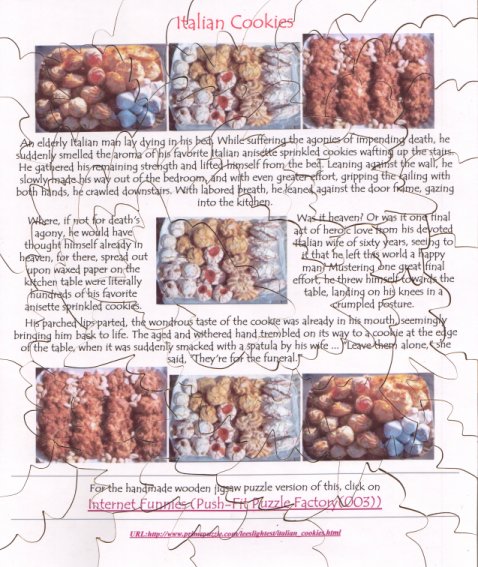 Italian Cookies
An elderly Italian man lay dying in his bed. While suffering the agonies of impending death, he
suddenly smelled the aroma of his favorite Italian anisette sprinkled cookies wafting up the stairs.
He gathered his remaining strength and lifted himself from the bed. Leaning against the wall, he
slowly made his way out of the bedroom, and with even greater effort, gripping the railing with
both hands, he crawled downstairs. With labored breath, he leaned against the door frame, gazing
into the kitchen.
Where, if not for death's
agony, he would have
thought himself already in
heaven, for there, spread out
upon waxed paper on the
kitchen table were literally
hundreds of his favorite
anisette sprinkled cookies.
Was it heaven? Or was it one final
act of heroic love from his devoted
Italian wife of sixty years, seeing to
it that he left this world a happy
man? Mustering one great final
effort, he threw himself towards the
table, landing on his knees in a
crumpled posture.
His parched lips parted, the wondrous taste of the cookie was already in his mouth, seemingly
bringing him back to life. The aged and withered hand trembled on its way to a cookie at the edge
of the table, when it was suddenly smacked with a spatula by his wife ... "Leave them alone," she
said, "They're for the funeral."
For the handmade wooden jigsaw puzzle version of this, click on
Internet Funnies (Push-Fit Puzzle Factory(003))
URL:http://www.primepuzzle.com/leeslightest/italian_cookies.html